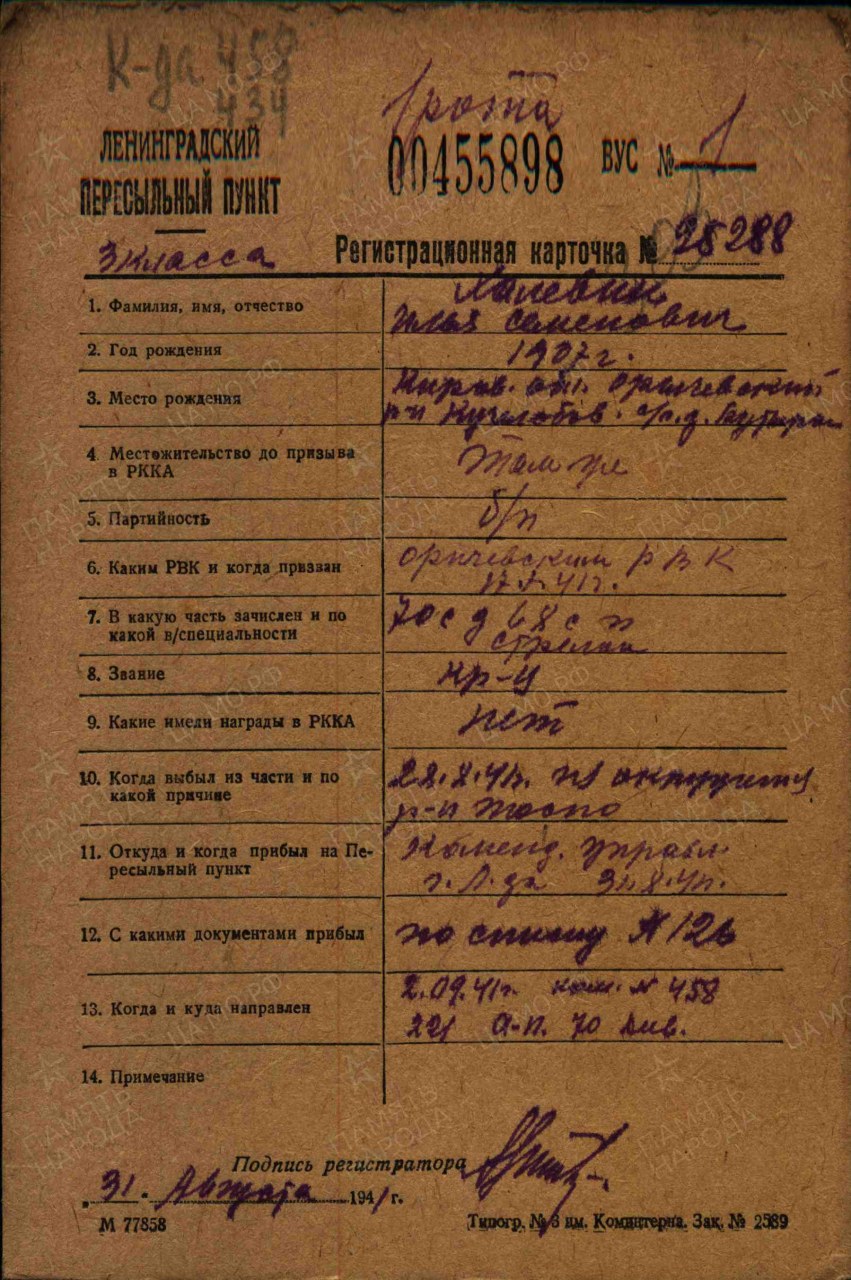 К-да 458
434
1 рота
ЛЕНИНГРАДСКИЙ
ПЕРЕСЫЛЬНЫЙ ПУНКТ
00455898
ВУС № 1
3 класса
Регистрационная карточка № 25288
1. Фамилия, имя, отчество
Халевин
Илья Семенович
2. Год рождения
1907 г.
3. Место рождения
Киров. обл. Оричевский
р-н с/с. д.
4. Местожительство до призыва
в РККА
Там же
5. Партийность
б/п
6. Каким РВК и когда призван
Оричевским РВК
41 г.
7. В какую часть зачислен и по
какой в/специальности
70 с д 68 с п
стрелок
8. Звание
кр-ц
9. Какие имели награды в РККА
нет
10. Когда выбыл из части и по
какой причине
28.8.41г. из окружения
р-н Тосно
11. Откуда и когда прибыл на Пе-
ресыльный пункт
Коменд. управл.
г. Л-да 31.8.41г.
12. С какими документами прибыл
по списку №126
13. Когда и куда направлен
2.09.41г. ком. № 458
221 а-п. 70 див.
14. Примечание
Подпись регистратора
„ 31 " Августа 1941 г.
М 77858
Типогр. № 3 им. Коминтерна. Зак. № 2589